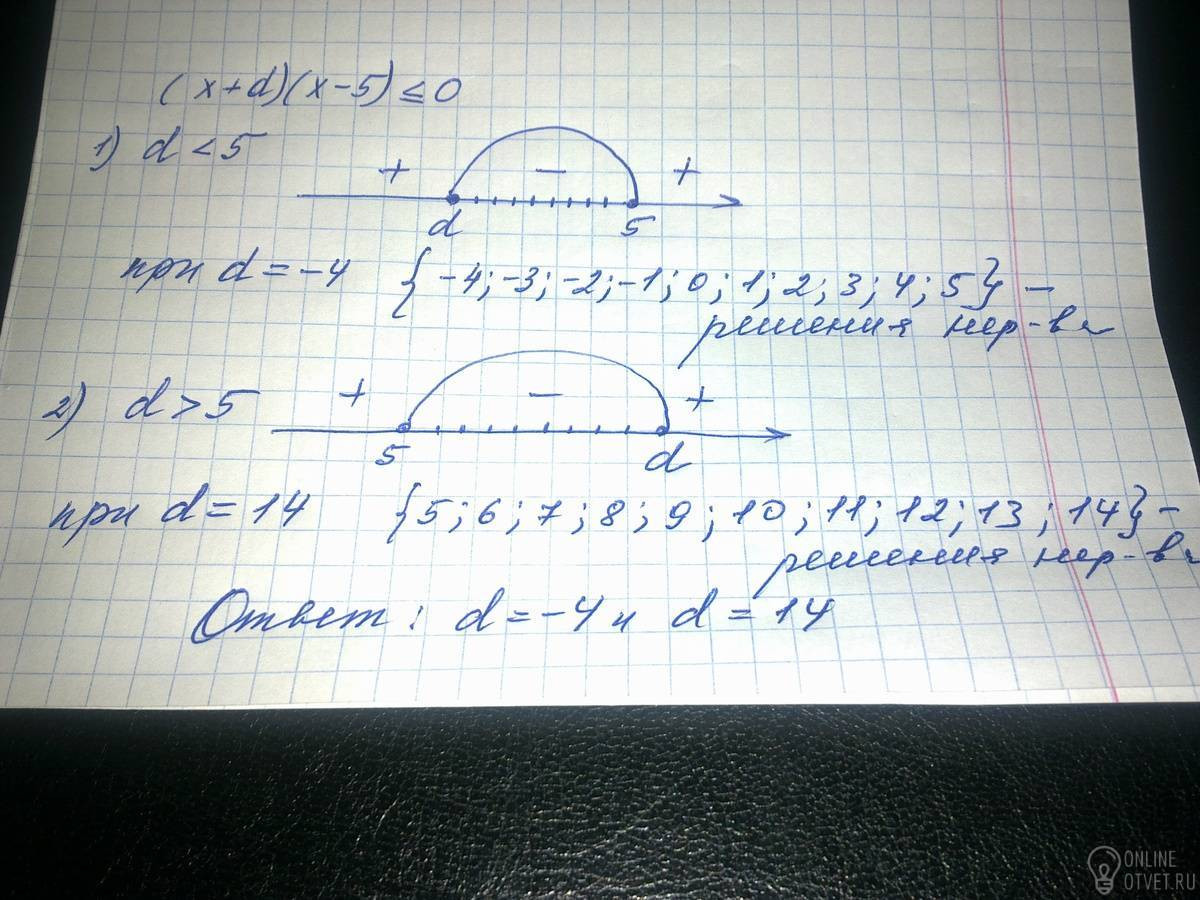 (x+d)(x-5) ≤ 0
1) d < 5
+ − +
d 5
при d = -4 {-4; -3; -2; -1; 0; 1; 2; 3; 4; 5} -
решения нер-ва
2) d > 5
+ − +
5 d
при d = 14 {5; 6; 7; 8; 9; 10; 11; 12; 13; 14} -
решения нер-ва
Ответ: d = -4 и d = 14
ONLINE
OTVET.RU